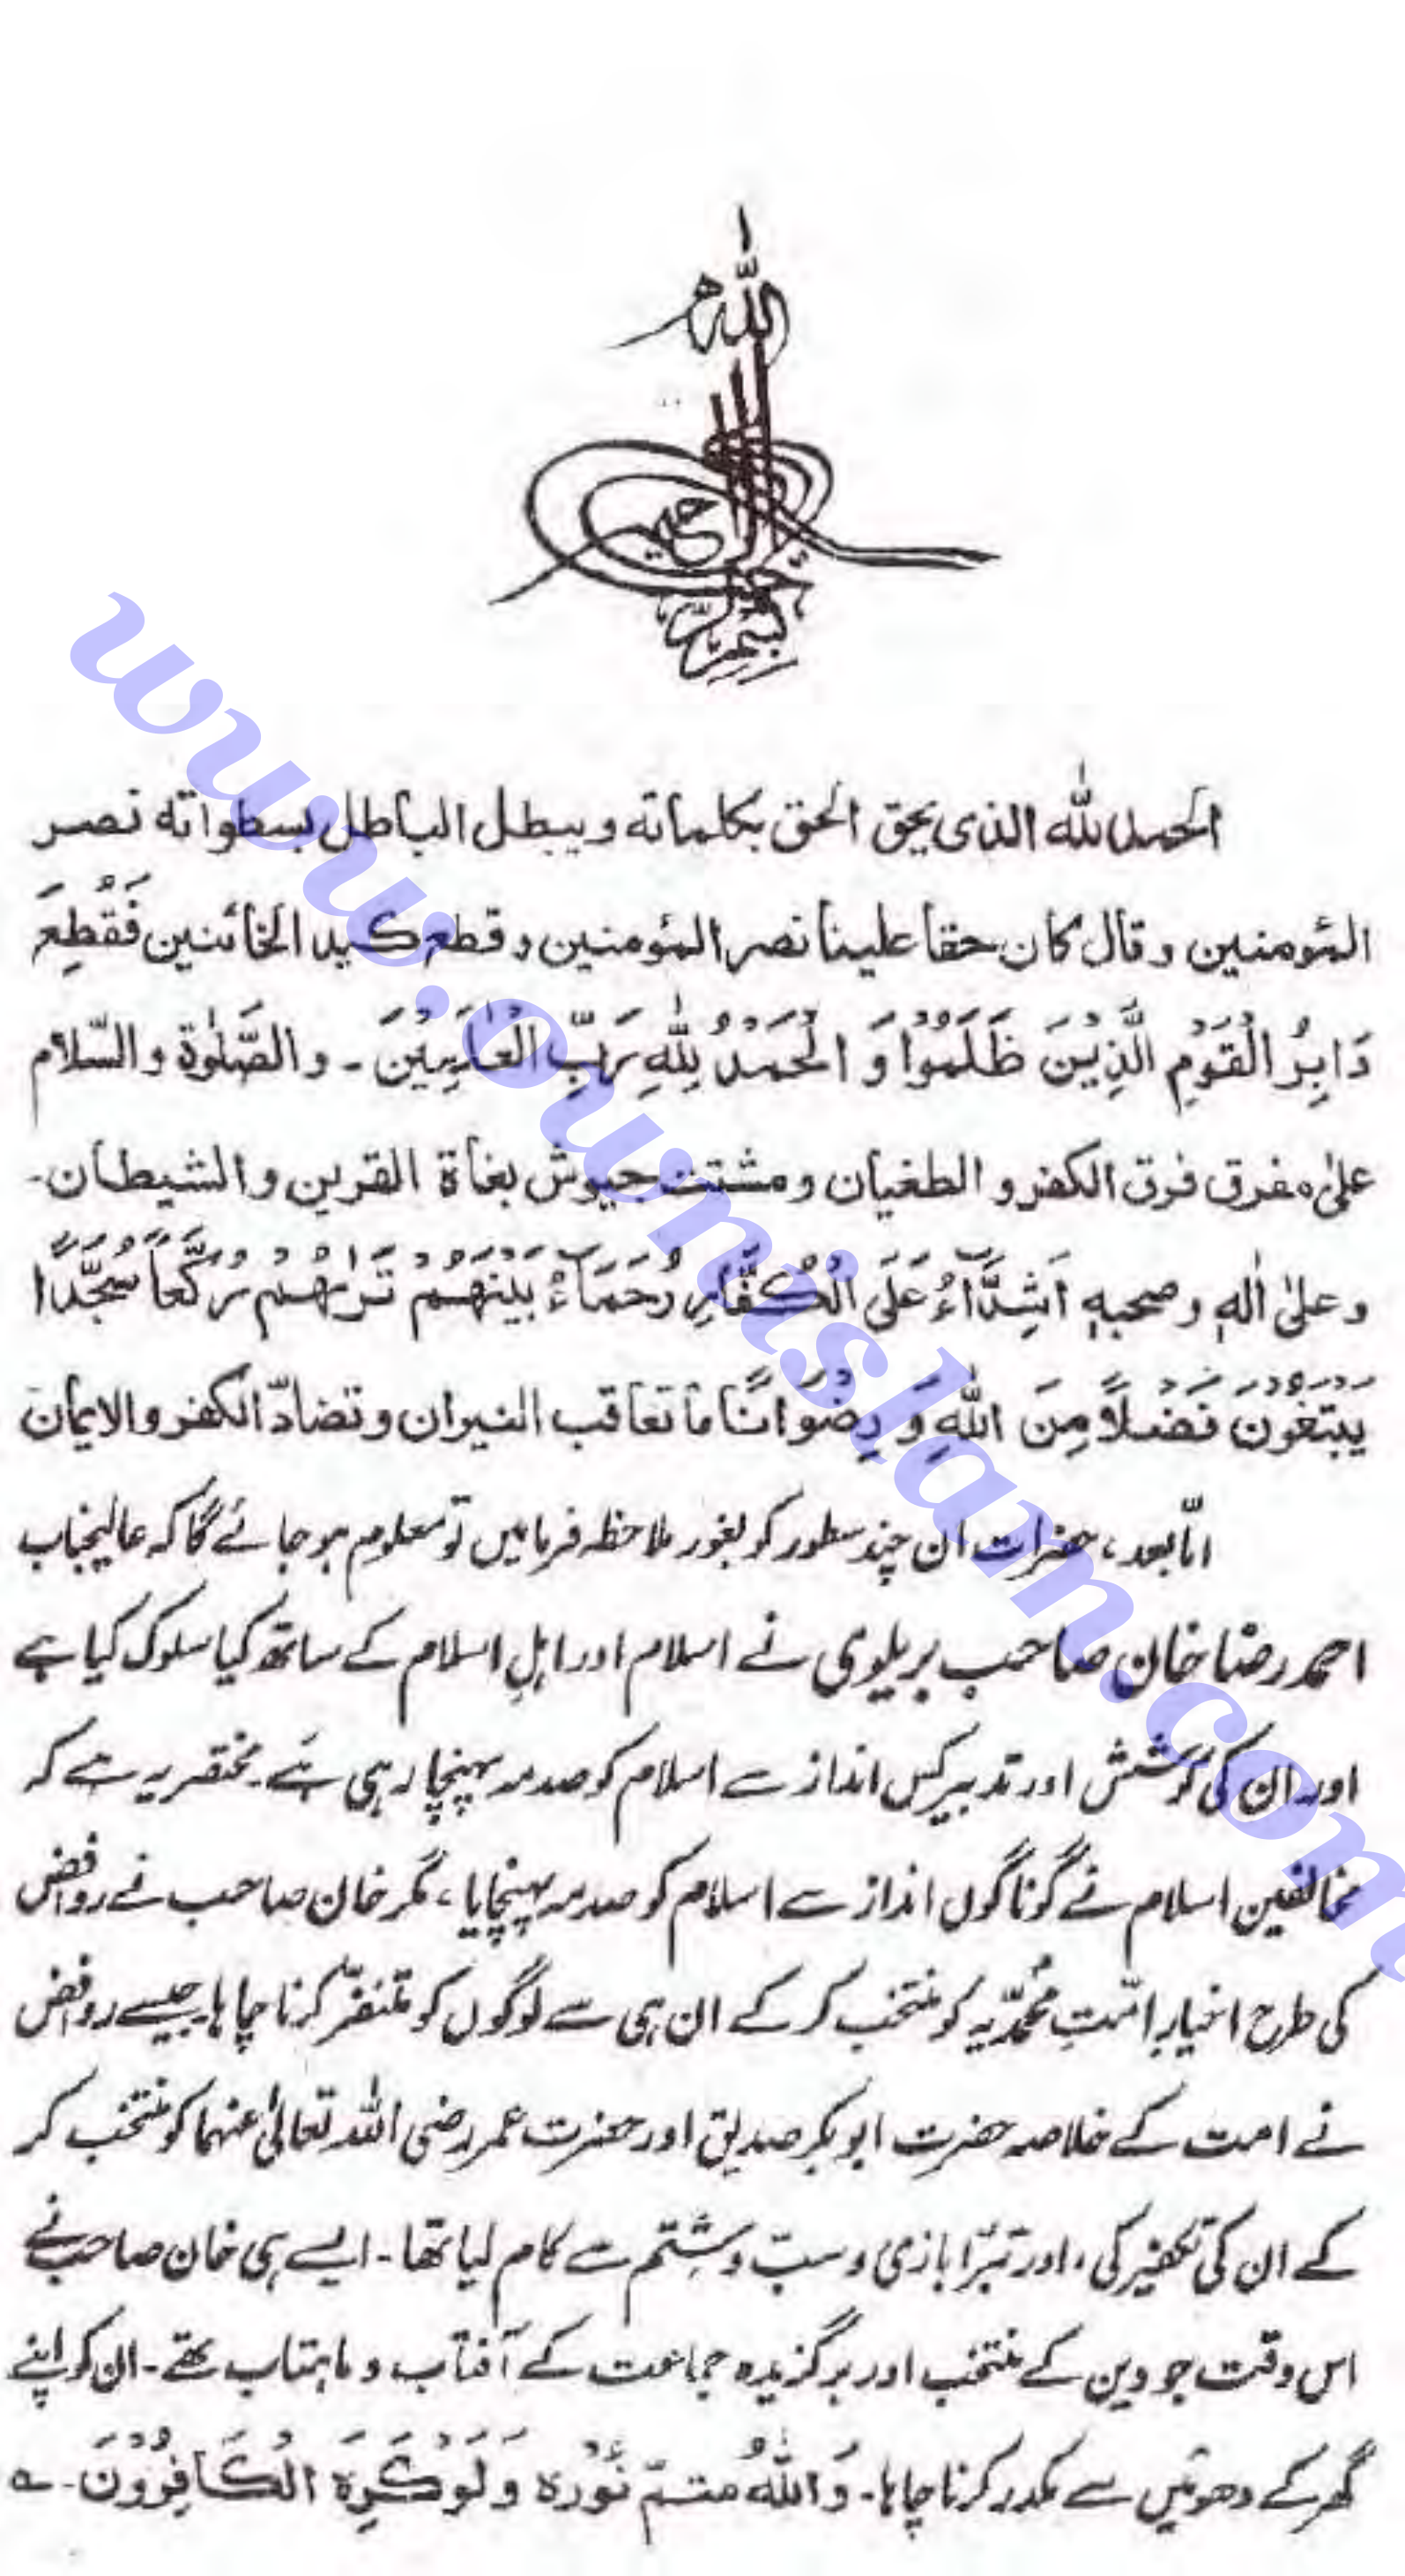 بسم الله الرحمن الرحيم
الحمد لله الذى يحق الحق بكلماته ويبطل الباطل بسطواته نصر
المؤمنين وقال كان حقا علينا نصر المؤمنين وقطع كيد الخائنين فَقُطِعَ
دَابِرُ الْقَوْمِ الَّذِيْنَ ظَلَمُوْا وَ الْحَمْدُ لِلّٰهِ رَبِّ الْعٰلَمِيْنَ ـ والصَّلٰوة والسّلام
علىٰ مفرق فرق الكفر و الطغيان ومشتت جيوش بغاة القرين والشيطان ـ
وعلىٰ اٰلهٖ وصحبهٖ اَشِدَّآءُ عَلَى الْكُفَّارِ رُحَمَآءُ بَيْنَهُمْ تَرٰىهُمْ رُكَّعاً سُجَّدًا
يَبْتَغُوْنَ فَضْلاً مِنَ اللّٰهِ وَ رِضْوَانًا ما تعاقب النيران وتضادّ الكفر والايمان
امّا بعد، حضرات ان چند سطور کو بغور ملاحظہ فرمائیں تو معلوم ہو جائے گا کہ عالیجناب
احمد رضا خان صاحب بریلوی نے اسلام اور اہلِ اسلام کے ساتھ کیا سلوک کیا ہے
اور ان کی کوشش اور تدبیر کس انداز سے اسلام کو صدمہ پہنچا رہی ہے۔ مختصر یہ ہے کہ
مخالفین اسلام نے گوناگوں انداز سے اسلام کو صدمہ پہنچایا، مگر خان صاحب نے روافض
کی طرح اخیارِ امّتِ محمّدیّہ کو منتخب کر کے ان ہی سے لوگوں کو متنفّر کرنا چاہا۔ جیسے روافض
نے امت کے خلاصہ حضرت ابوبکر صدیق اور حضرت عمر رضی اللہ تعالیٰ عنہما کو منتخب کر
کے ان کی تکفیر کی، اور تبرّا بازی و سبّ و شتم سے کام لیا تھا۔ ایسے ہی خان صاحب نے
اس وقت جو دین کے منتخب اور برگزیدہ جماعت کے آفتاب و ماہتاب تھے۔ ان کو اپنے
گھر کے دھوئیں سے مکدر کرنا چاہا۔ وَاللّٰهُ متمّ نُوْرہ وَلَوْ كَرِهَ الْكَافِرُوْنَ ۔ ؎
www.ownislam.com